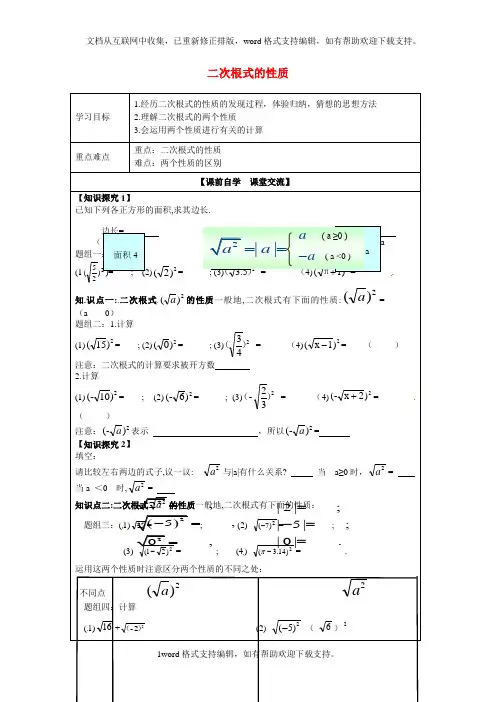 文档从互联网中收集，已重新修正排版，word格式支持编辑，如有帮助欢迎下载支持。
二次根式的性质
学习目标
1.经历二次根式的性质的发现过程，体验归纳，猜想的思想方法
2.理解二次根式的两个性质
3.会运用两个性质进行有关的计算
重点难点
重点：二次根式的性质
难点：两个性质的区别
【课前自学 课堂交流】
【知识探究1】
已知下列各正方形的面积,求其边长.
边长=
面积4
√a² = |a| = { a ( a ≥0 )
-a ( a <0 )
a
a
题组一:
; (2) (√2)² = ; (3) (√3.5)² =
知.识点一:.二次根式 (√a)² 的性质一般地,二次根式有下面的性质: (√a)² =
(a 0)
题组二：1.计算
(1) (√15)² = ; (2) (√0)² = ; (3) (√(3/4))² = (4) (√(x−1))² = ( )
注意：二次根式的计算要求被开方数
2.计算
(1) (-√10)² = ; (2) (-√6)² = ; (3) (-√(2/3))² = (4) (-√(x+2))² = .
( )
注意：(-√a)² 表示 ，所以 (-√a)² =
【知识探究2】
填空:
请比较左右两边的式子,议一议: √a² 与|a|有什么关系? 当 a≥0 时，√a² =
当 a ＜0 时, √a² =
知识点二:二次根式 √a² 的性质一般地,二次根式有下面的性质:
题组三：(.1)
; (2) √(−7)² = ;
(3) √(1−√2)² = ; (4.) √(π−3.14)² = .
√(−5)² = , |−5| = ;
√0² = , |0| = .
运用这两个性质时注意区分两个性质的不同之处:
不同点 (√a)² √a²
题组四：计算
(.1) √16 + √(-2)² (2) √(−5)² ( √6 )²
1word格式支持编辑，如有帮助欢迎下载支持。